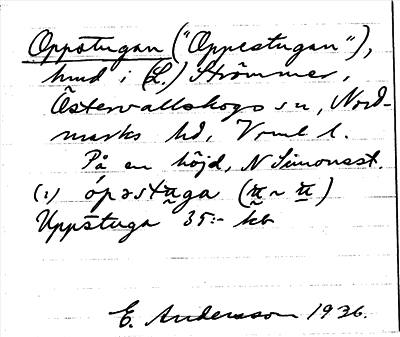 Oppstugan ("Oppestugan"),
hmd i (L.) Strömmer,
Östervallskogs sn, Nord-
marks hd, Vrml l.
På en höjd, N Simonsst.
(1) ópəstu̲ga (u̲ ~ u̲)
Uppstuga 35:- kb
E. Andersson 1936.